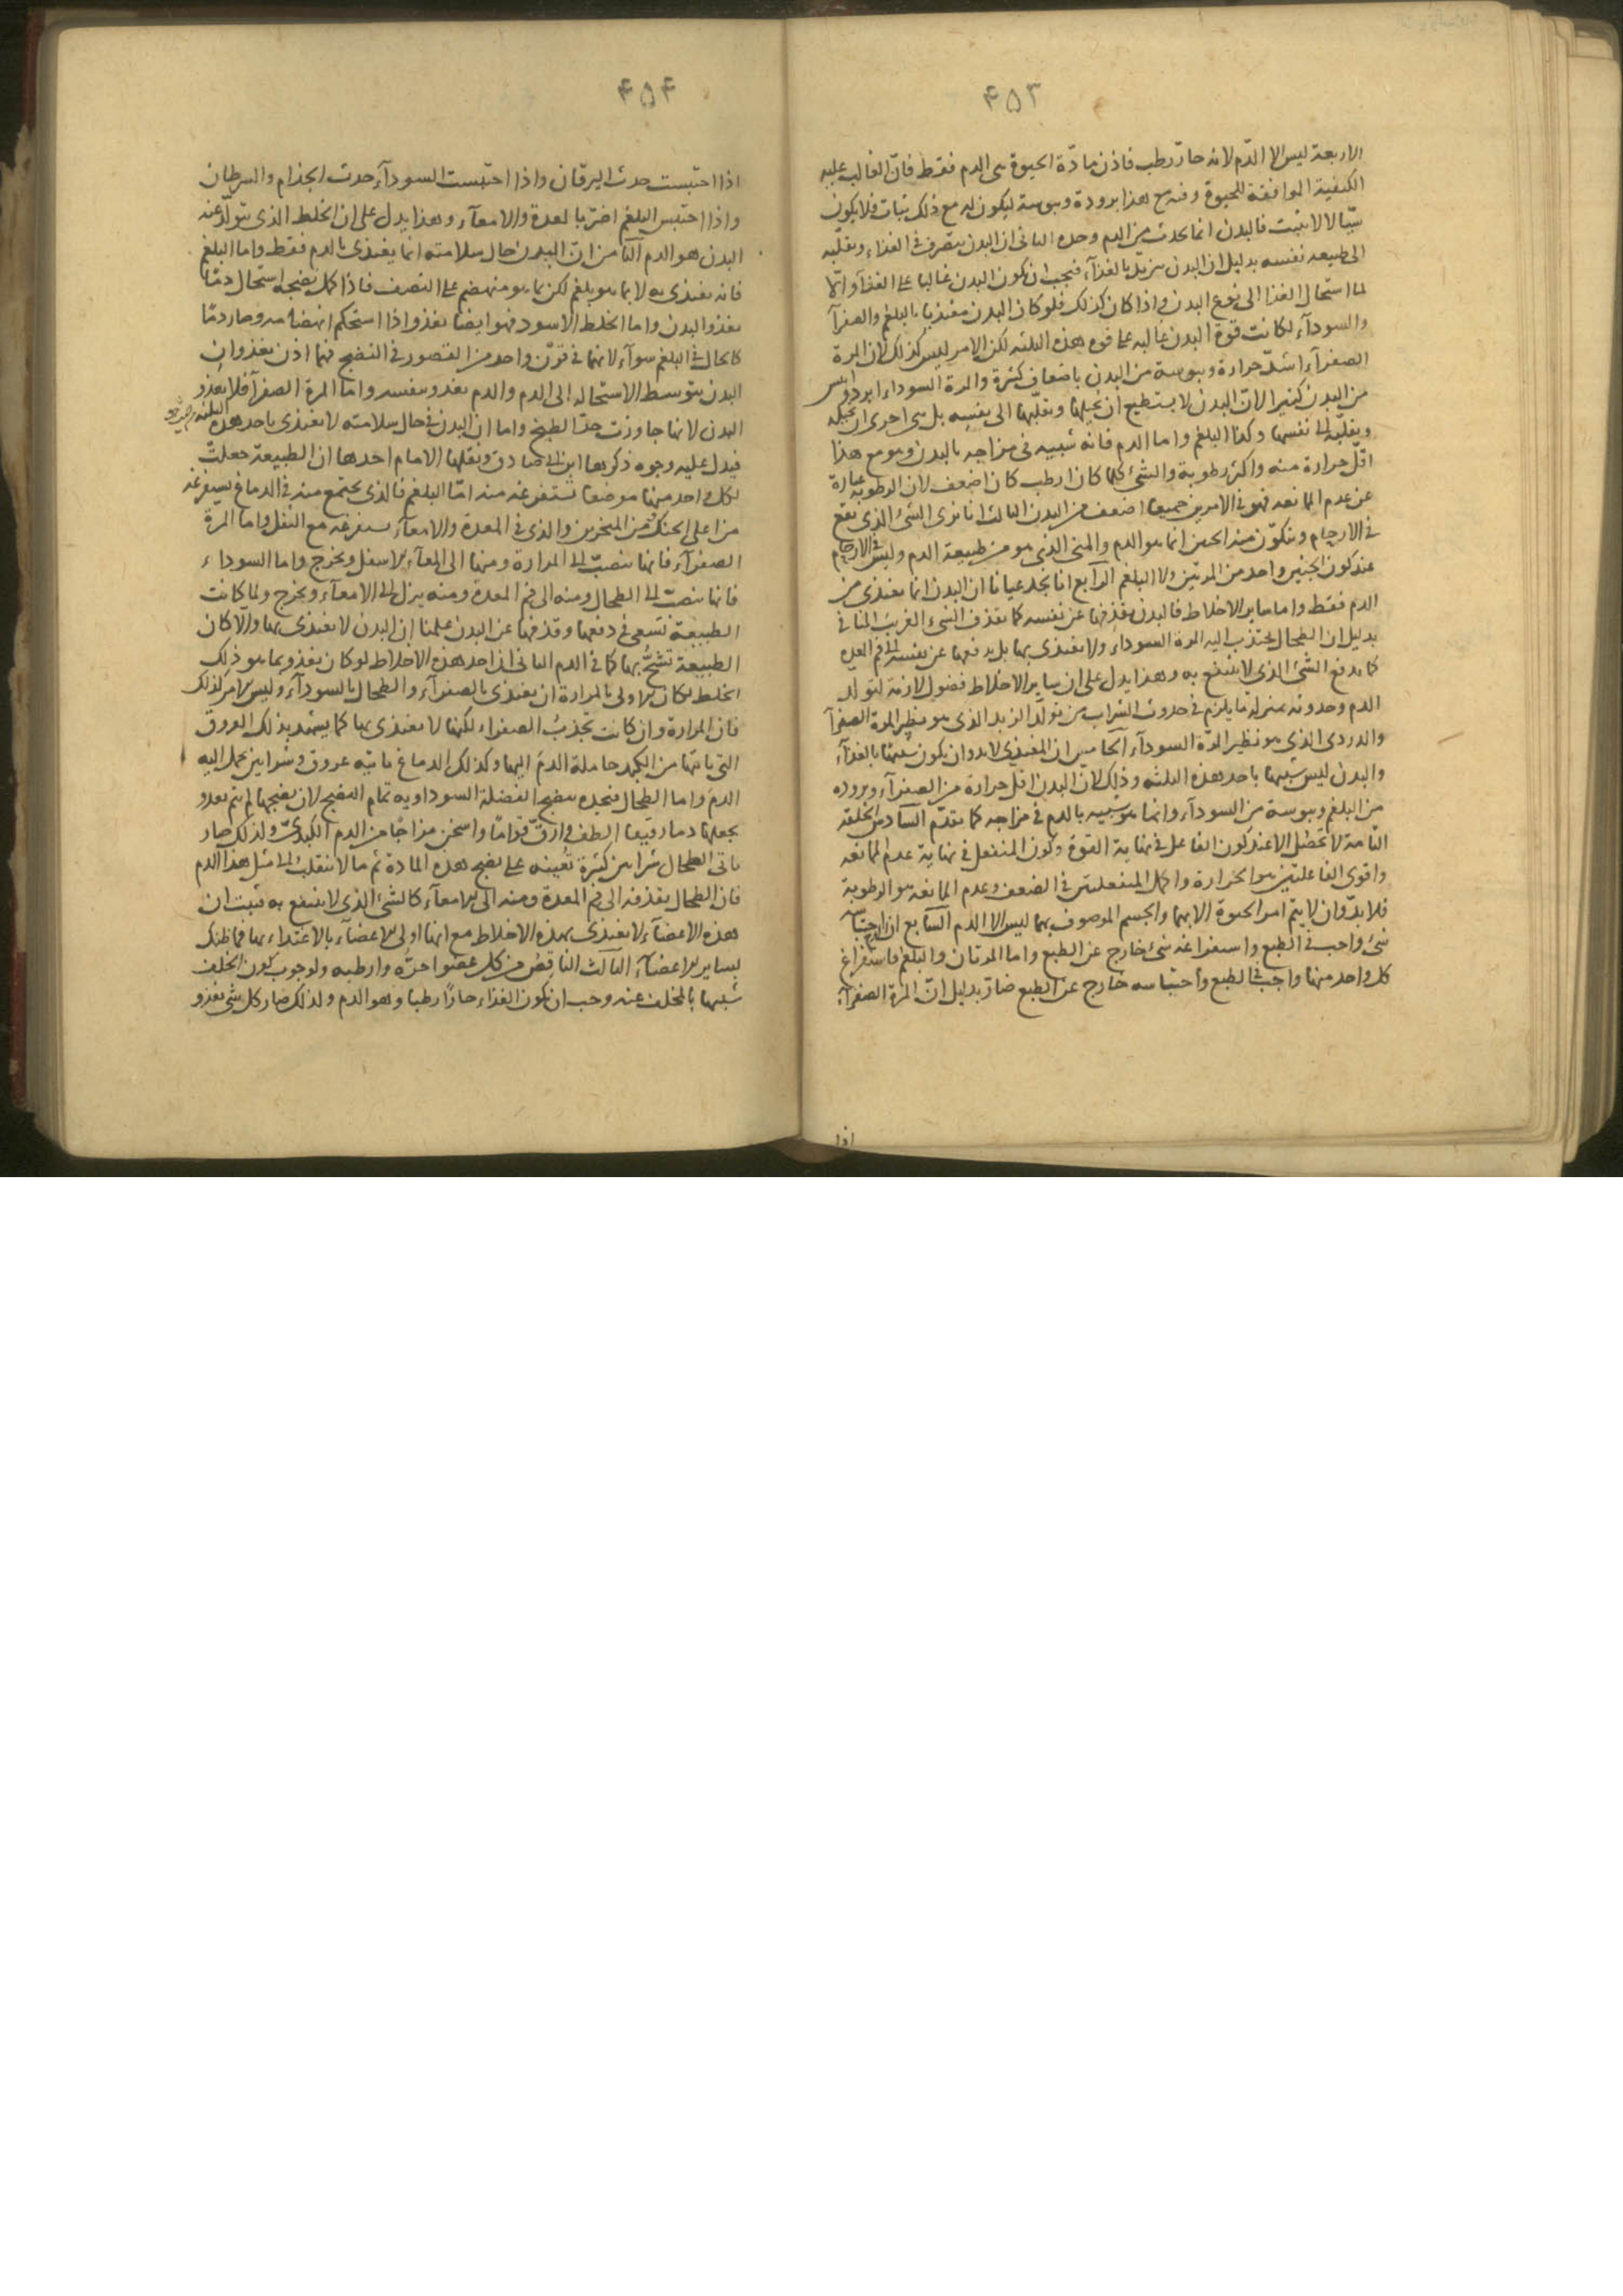 ۴۵۳
الاربعة ليس الا الدّم لانه حارّ رطب فاذن مادّة الحيوة هى الدم فقط فانّ الغالب عليه
الكيفية الموافقة للحيوة وفيه مع هذا برودة ويبوسة ليكون له مع ذلك ثبات فلا يكون
سيّالا لا يثبت فالبدن انما يحدث من الدم وحده الثانى ان البدن يتصرف فى الغذاء ويقلبه
الى طبيعة نفسه بدليل ان البدن يتزيّد بالغذآء فيجب ان يكون البدن غالبا على الغذآء والّا
لما استحال الغذا الى نوع البدن واذا كان كذلك فلو كان البدن مغتذيا بالبلغم والصفرآ
والسودآء لكانت قوة البدن غالبه على قوة هذه الثلثه لكن الامر ليس كذلك لان المرة
الصفرآء اشدّ حرارة ويبوسة من البدن باضعاف كثيرة والمرة السوداء ابرد وايبس
من البدن كثيرا لانّ البدن لا يستطيع ان يحيلها ويقلّبها الى نفسه بل هى احرى ان تحيله
ويقلّبه الى نفسها وكذا البلغم واما الدم فانه شبيه فى مزاجه بالبدن وهو مع هذا
اقلّ حرارة منه واكثر رطوبة والشئ كلما كان ارطب كان اضعف لان الرطوبة عبارة
عن عدم الممانعه فهو فى الامرين جميعا اضعف من البدن الثالث انا نرى الشئ الذى يقع
فى الارحام ويتكوّن منه الجنين انما هو الدم والمنى الذى هو من طبيعة الدم وليس فى الارحام
عند كون الجنين واحد من المرتين ولا البلغم الرابع انا نجد عيانا ان البدن انما يغتذى من
الدم فقط واما سائر الاخلاط فالبدن يقذفها عن نفسه كما يقذف الشئ الغريب المنافى
بدليل ان الطحال يجتذب اليه المرة السوداء ولا يغتذى بها بل يدفعها عن نفسه الى فم المعدة
كما يدفع الشئ الذى لا ينتفع به وهذا يدل على ان سائر الاخلاط فضول لازمة لتولد
الدم وحدوثه بمنزلة ما يلزم فى حدوث الشراب من تولّد الزبد الذى هو نظير المرة الصفرآ
والدردى الذى هو نظير المرّة السودآء الخامس ان المغتذى لا بد وان يكون شبيها بالغذآء
والبدن ليس شبيها باحد هذه الثلثه وذلك لان البدن اقل حرارة من الصفرآء وبرودة
من البلغم ويبوسة من السودآء وانما هو شبيه بالدم فى مزاجه كما تقدّم السادس الخلقة
التّامة لا تحصل الا عند كون الفاعل فى نهاية القوة وكون المنفعل فى نهاية عدم الممانعه
واقوى الفاعلتين هو الحرارة واكمل المنفعلتين فى الضعف وعدم الممانعة هو الرطوبة
فلا بدّ وان لا يتم امر الحيوة الا بهما والجسم الموصوف بهما ليس الا الدم السابع ان احتباس
شئ واجب فى الطبع واستفراغه شئ خارج عن الطبع واما المرتان والبلغم فاستفراغ
كل واحد منها واجب فى الطبع واحتباسه خارج عن الطبع ضارّ بدليل انّ المرة الصفرآء
اذا
۴۵۴
اذا احتبست حدث اليرقان واذا احتبست السودآء حدث الجذام والسرطان
واذا احتبس البلغم اضرّ بالمعدة والامعآء وهذا يدل على ان الخلط الذى يتولّد عنه
البدن هو الدم الثامن انّ البدن حال سلامته انما يغتذى بالدم فقط واما البلغم
فانه يغتذى به لا بما هو بلغم لكن بما هو منهضم على النصف فاذا كمل نضجه استحال دمًا
يغذو البدن واما الخلط الاسود فهو ايضا يغذو اذا استحكم انهضامه وصار دمًا
كالحال فى البلغم سوآء لانهما فى قرن واحد من القصور فى النضج فهما اذن يغذوان
البدن بتوسط الاستحاله الى الدم والدم يغذو بنفسه واما المرة الصفرآ فلا يغذو
البدن لانها جاوزت حدّ الطبخ واما ان البدن فى حال سلامته لا يغتذى باحد هذه الثلثة
فيدل عليه وجوه ذكرها ابن ابى صادق ونقلها الامام احدها ان الطبيعة جعلت
لكل واحد منها موضعا تستفرغه منه امّا البلغم فالذى يجتمع منه فى الدماغ يستفرغه
من اعلى الحنك ومن المنخرين والذى فى المعدة والامعآء يستفرغه مع الثفل واما المرة
الصفرآء فانها تنصبّ الى المرارة ومنها الى المعآء الاسفل ويخرج واما السوداء
فانها تنصبّ الى الطحال ومنه الى فم المعدة ومنه ينزل الى الامعآء ويخرج ولما كانت
الطبيعة تسعى فى دفعها وقذفها عن البدن علمنا ان البدن لا يغتذى بها والّا كان
الطبيعة تشحّ بها كما فى الدم الثانى ان احد هذه الاخلاط لو كان يغذو بما هو ذلك
الخلط لكان الاولى بالمرارة ان يغتذى بالصفرآء والطحال بالسودآء وليس الامر كذلك
فان المرارة وان كانت تجذب الصفراء لكنها لا يغتذى بها كما يشهد بذلك العروق
التى تاتيها من الكبد حاملة الدم اليها وكذلك الدماغ ياتيه عروق وشرايين يحمل اليه
الدم واما الطحال فنجده ينضج الفضلة السوداويه تمام النضج لان ينضجها ثم يغذو
يجعلها دما رقيقا الطف وارقّ قوامًا واسخن مزاجًا من الدم الكبدىّ ولذلك صار
ياتى الطحال شرايين كثيرة تعينه على نضج هذه المادة ثم ما لا ينقلب الى مثل هذا الدم
فان الطحال يقذفه الى فم المعدة ومنه الى الامعآء كالشئ الذى لا ينتفع به فثبت ان
هذه الاعضآء لا يغتذى بهذه الاخلاط مع انها اولى الاعضآء بالاغتذاء بها فما ظنك
بساير الاعضآء الثالث الناقص من كل عضو احرّه وارطبه ولوجوب كون الخلف
شبيها بالمخلف عنه وجب ان يكون الغذاء حارًا رطبا وهو الدم ولذلك صار كل شئ يغذو